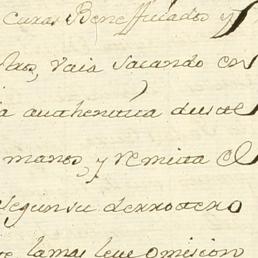 curas Beneficiados y
vaia sacando en
a authentica desde
manos, y remita el
segun su derrotero
la mas leve omision